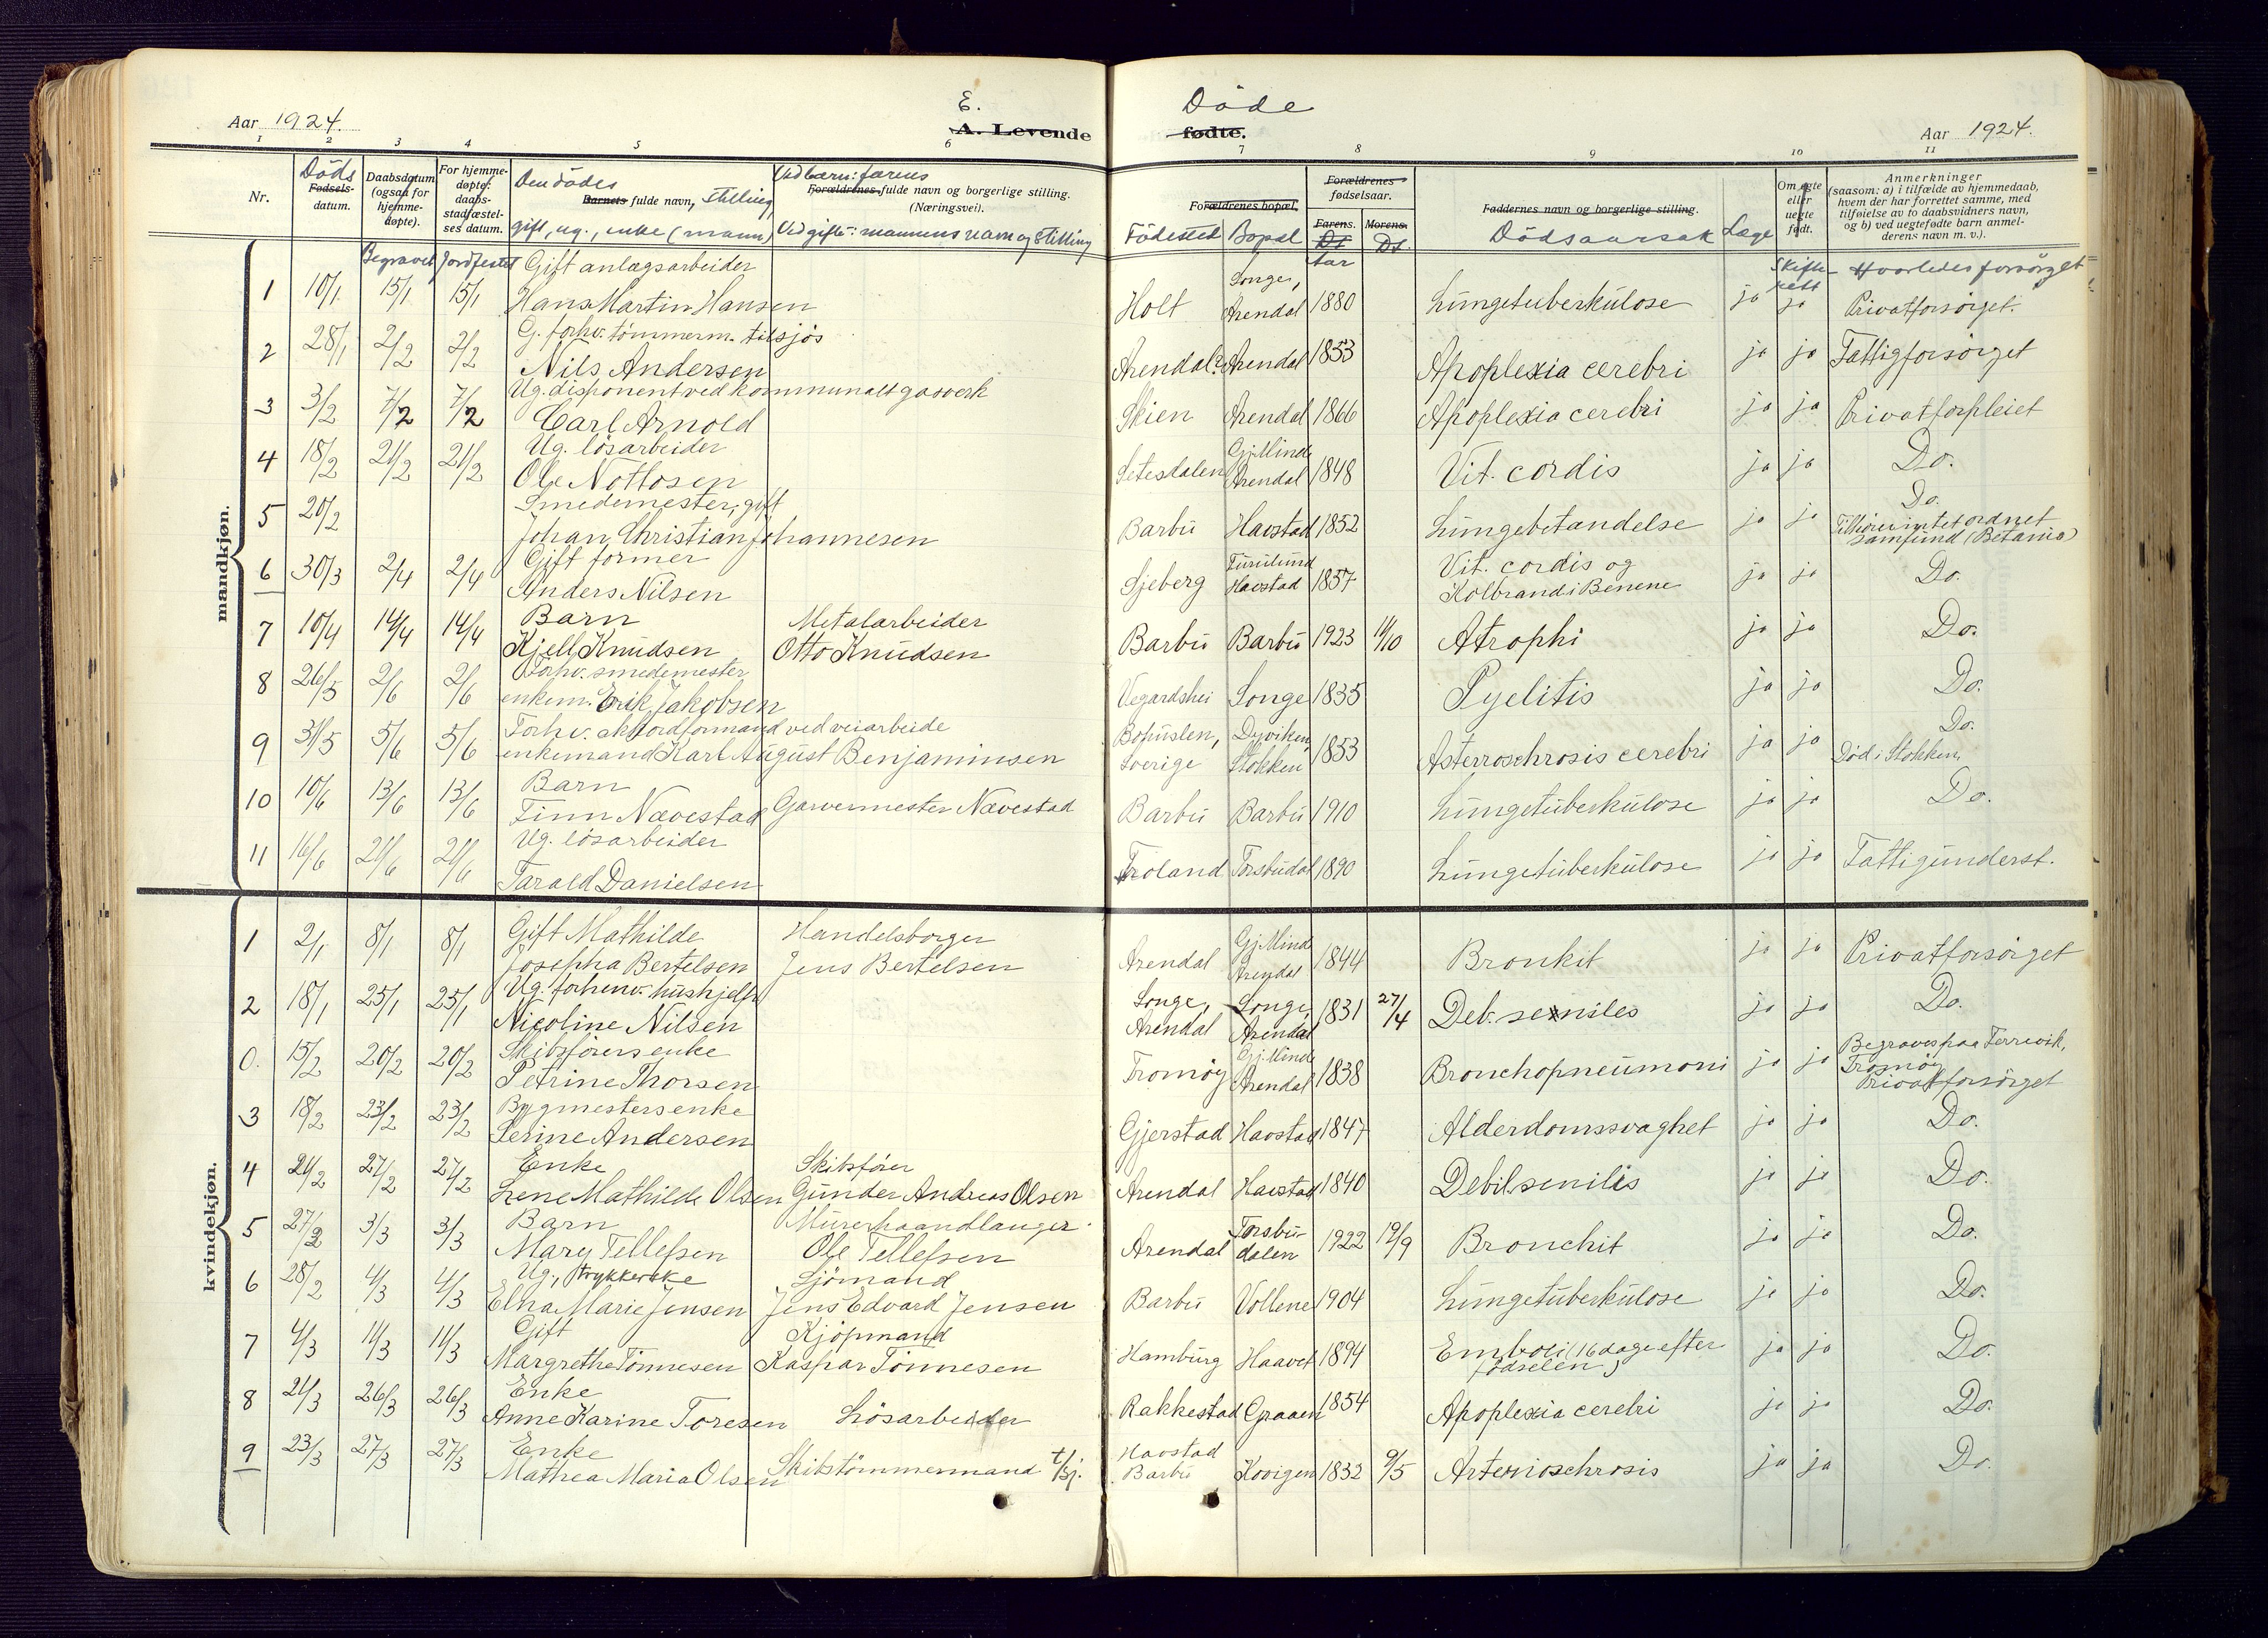 Aar 1924.
E.
A. Levende
Døde
fødte.
Aar 1924.
1 2 3 4 5 6 7 8 9 10 11
Nr.
Døds
Fødsels-
datum.
Daabsdatum
(ogsaa for
hjemme-
døpte).
Begravet
For hjemme-
døpte:
daabs-
stadfæstel-
ses datum.
Jordfestet
Den dødes
Barnets fulde navn, stilling,
gift, ug., enke (mann)
Ved barn: farens
Forældrenes fulde navn og borgerlige stilling.
(Næringsvei).
Ved gifte: mannens navn og stilling
Forældrenes bopæl.
Fødested Bopæl
Forældrenes
fødselsaar.
Farens. Morens.
Aar Dt.
Faddernes navn og borgerlige stilling.
Dødsaarsak Læge
Om egte
eller
uegte
født.
Skifte-
rett
Anmerkninger
(saasom: a) i tilfælde av hjemmedaab,
hvem der har forrettet samme, med
tilføielse av to daabsvidners navn,
og b) ved uegtefødte barn anmel-
derens navn m. v.).
Hvorledes forsørget
mandkjøn.
Gift anlægsarbeider Songe,
1 10/1 15/1 15/1 Hans Martin Hansen Holt Arendal 1880 Lungetuberkulose ja ja Privatforsørget.
G. forhv. tømmerm. tilsjøs
2 28/1 2/2 2/2 Nils Andersen Arendal? Arendal 1853 Apoplexia cerebri ja ja Fattigforsørget
Ug. disponent ved kommunalt gasverk
3 3/2 7/2 7/2 Carl Arnold Skien Arendal 1866 Apoplexia cerebri ja ja Privatforpleiet
Ug. løsarbeider Gj. Minde
4 18/2 21/2 21/2 Ole Nottosen Setesdalen Arendal 1848 Vit. cordis ja ja Do.
Smedemester, gift Do.
5 20/2 Johan Christian Johannesen Barbu Havstad 1852 Lungebetændelse ja ja Tilhører intet ordnet
samfund (Betania)
Gift former Furulund Vit. cordis og
6 30/3 2/4 2/4 Anders Nilsen Sjeberg Havstad 1857 Kolbrand i Benene ja ja Do.
Barn Metalarbeider
7 10/4 14/4 14/4 Kjell Knudsen Otto Knudsen Barbu Barbu 1923 14/10 Atrophi ja ja Do.
Forhv. smedemester
8 26/5 2/6 2/6 enkem. Erik Jakobsen Vegardshei Songe 1835 Pyelitis ja ja Do.
Forhv. akkordformand ved veiarbeide Bohuslen, Dyviken, Do.
9 31/5 5/6 5/6 enkemand Karl August Benjaminsen Sverige Stokken 1853 Asterroschrosis cerebri ja ja Død i Stokken
Barn
10 10/6 13/6 13/6 Finn Nævestad Garvermester Nævestad Barbu Barbu 1910 Lungetuberkulose ja ja Do.
Ug. løsarbeider
11 16/6 21/6 21/6 Tarald Danielsen Froland Torsbudal 1890 Lungetuberkulose ja ja Fattigunderst.
kvindekjøn.
Gift Mathilde Handelsborger Gj. Mind
1 2/1 8/1 8/1 Josepha Bertelsen Jens Bertelsen Arendal Arendal 1844 Bronkit ja ja Privatforsørget
Ug. forhenv. hushjelp Songe, Songe,
2 18/1 25/1 25/1 Nicoline Nilsen Arendal Arendal 1831 27/4 Deb. seniles ja ja Do.
Skibsførers enke Gj. Minde Begraves paa Færvik,
0. 15/2 20/2 20/2 Petrine Thorsen Tromøy Arendal 1838 Bronchopneumoni ja ja Tromøy
Privatforsørget
Bygmesters enke
3 18/2 23/2 23/2 Serine Andersen Gjerstad Havstad 1847 Alderdomssvaghet ja ja Do.
Enke Skibsfører
4 21/2 27/2 27/2 Lene Mathilde Olsen Gunder Andreas Olsen Arendal Havstad 1840 Debil. senilis ja ja Do.
Barn Murerhaandlanger Torsbu-
5 27/2 3/3 3/3 Mary Tellefsen Ole Tellefsen Arendal dalen 1922 19/9 Bronchit ja ja Do.
Ug., strykerske Sjømand
6 28/2 4/3 4/3 Elna Marie Jensen Jens Edvard Jensen Barbu Vollene 1904 Lungetuberkulose ja ja Do.
Gift Kjøpmand
7 4/3 11/3 11/3 Margrethe Tønnesen Kaspar Tønnesen Hamburg Haavet 1894 Emboli (16 dage efter
fødselen) ja ja Do.
Enke
8 21/3 26/3 26/3 Anne Karine Toresen Løsarbeider Rakkestad Graaen 1854 Apoplexia cerebri ja ja Do.
Enke Havstad
9 23/3 27/3 27/3 Mathea Maria Olsen Skibstømmermand t/sj. Barbu Kovigen 1832 9/5 Arterioschrosis ja ja Do.